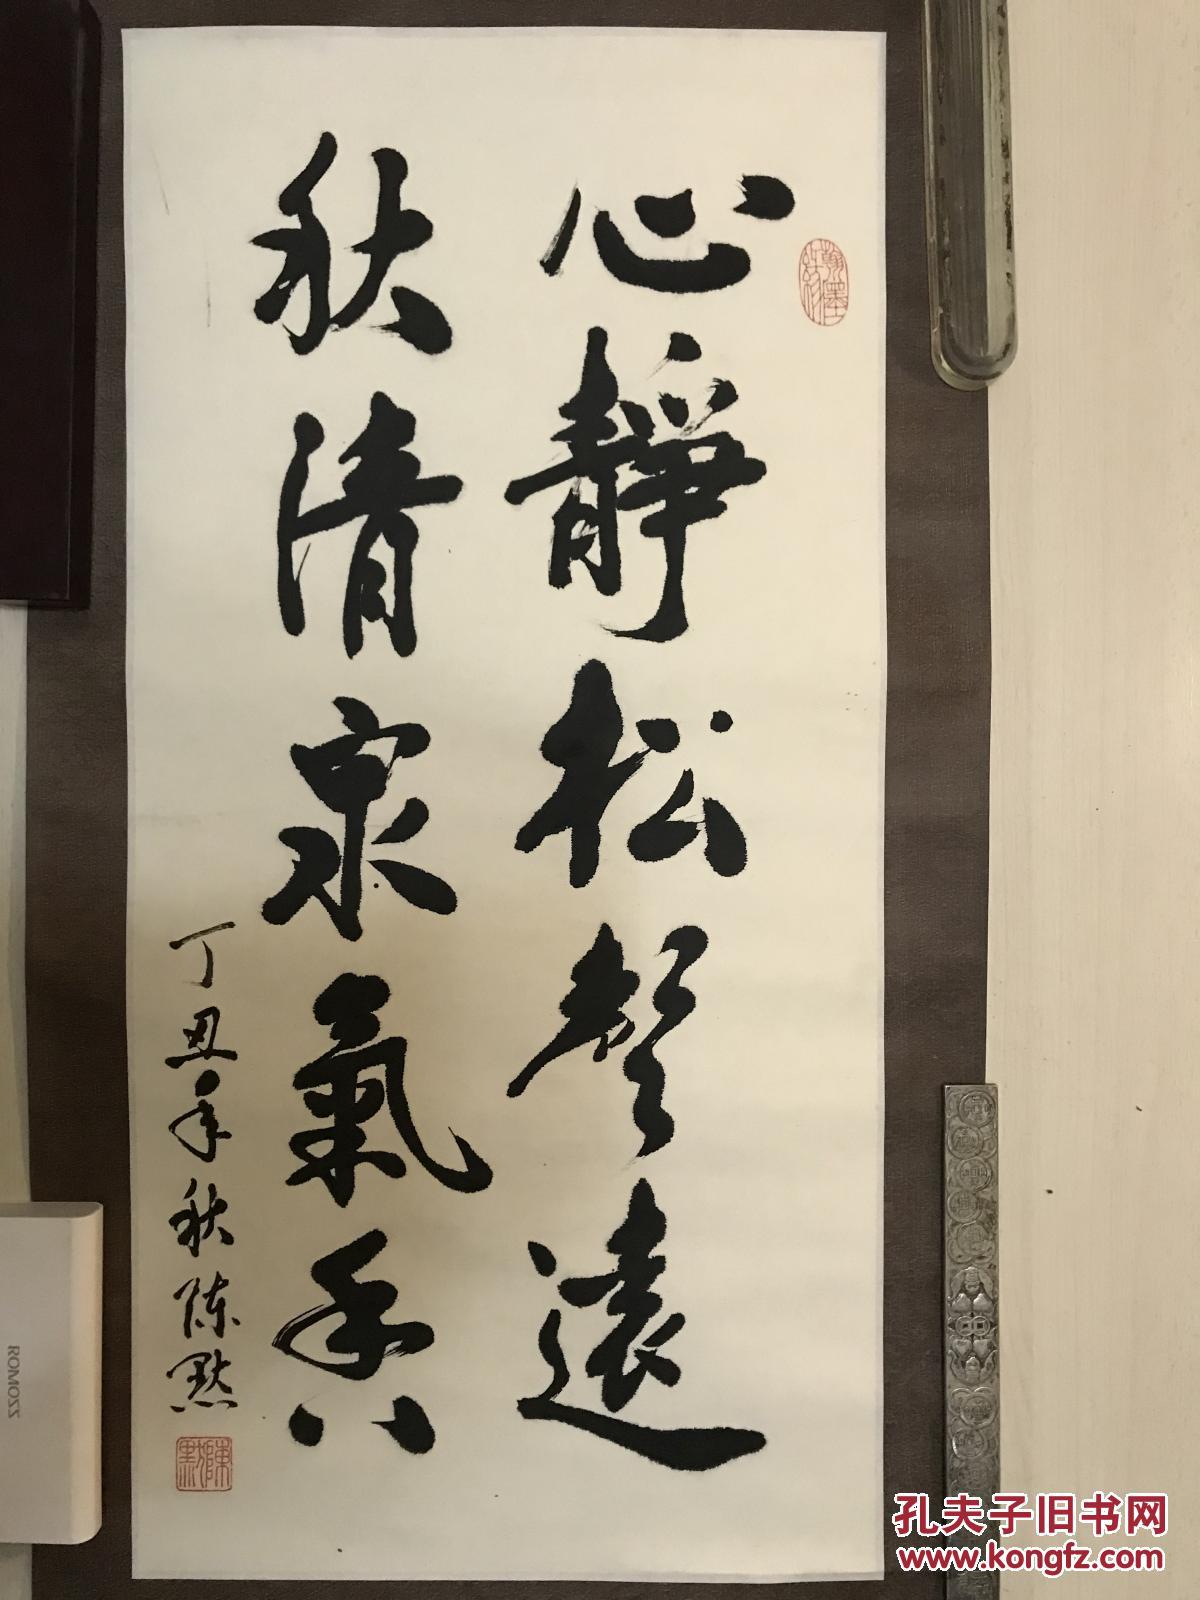 心靜松聲遠
秋清泉氣香
丁丑年秋陈默
陳默
ROMOSS
孔夫子旧书网
www.kongfz.com